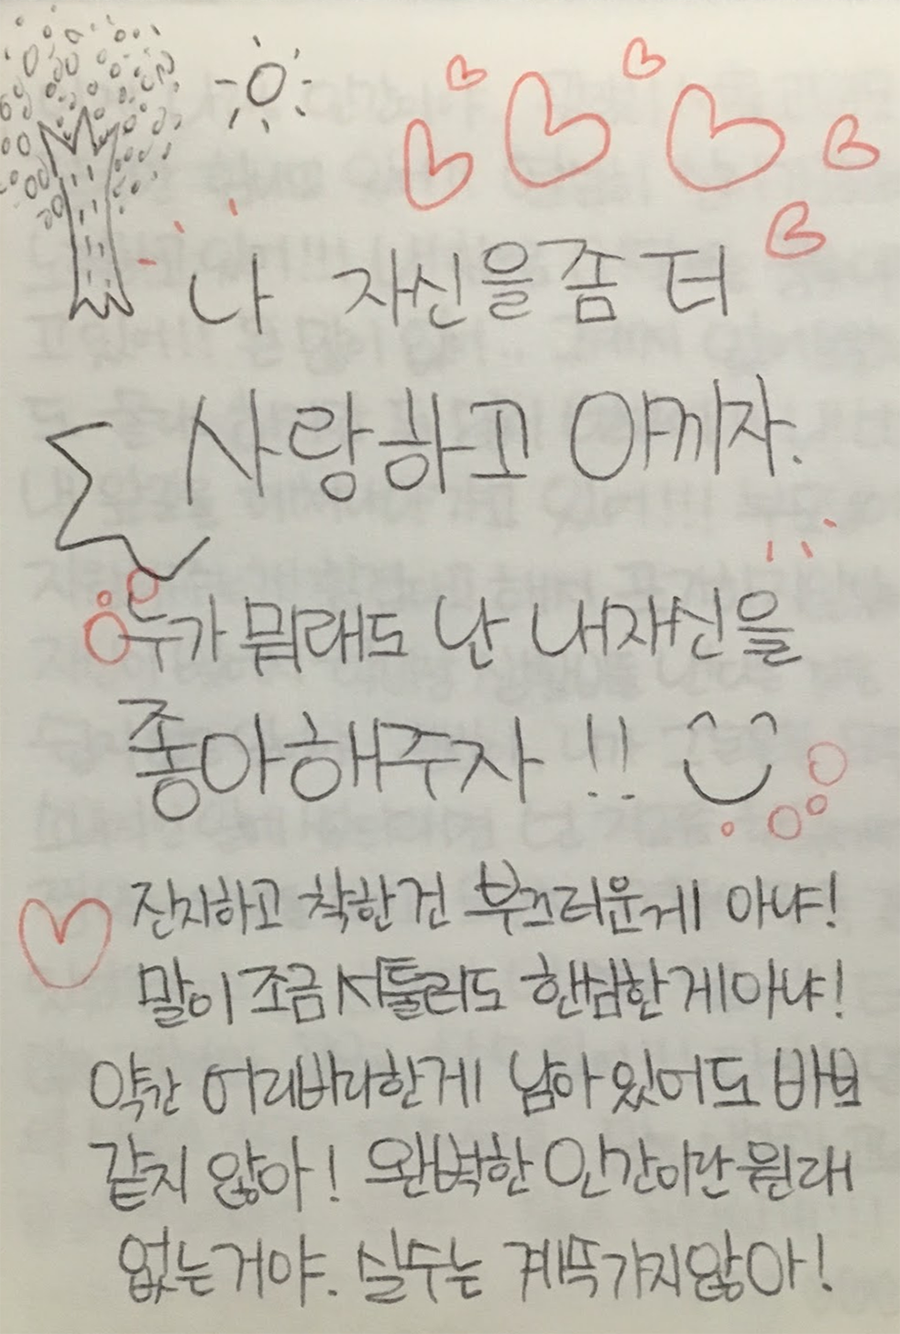 나 자신을 좀 더
사랑하고 아끼자.
누가 뭐래도 난 내자신을
좋아해주자!!
잔지하고 착한건 부끄러운게 아냐!
말이 조금 서툴러도 한심한게아냐!
약간 어리바리한게 남아있어도 바보
같지 않아! 완벽한 인간이란 원래
없는거야. 실수는 계속가지않아!